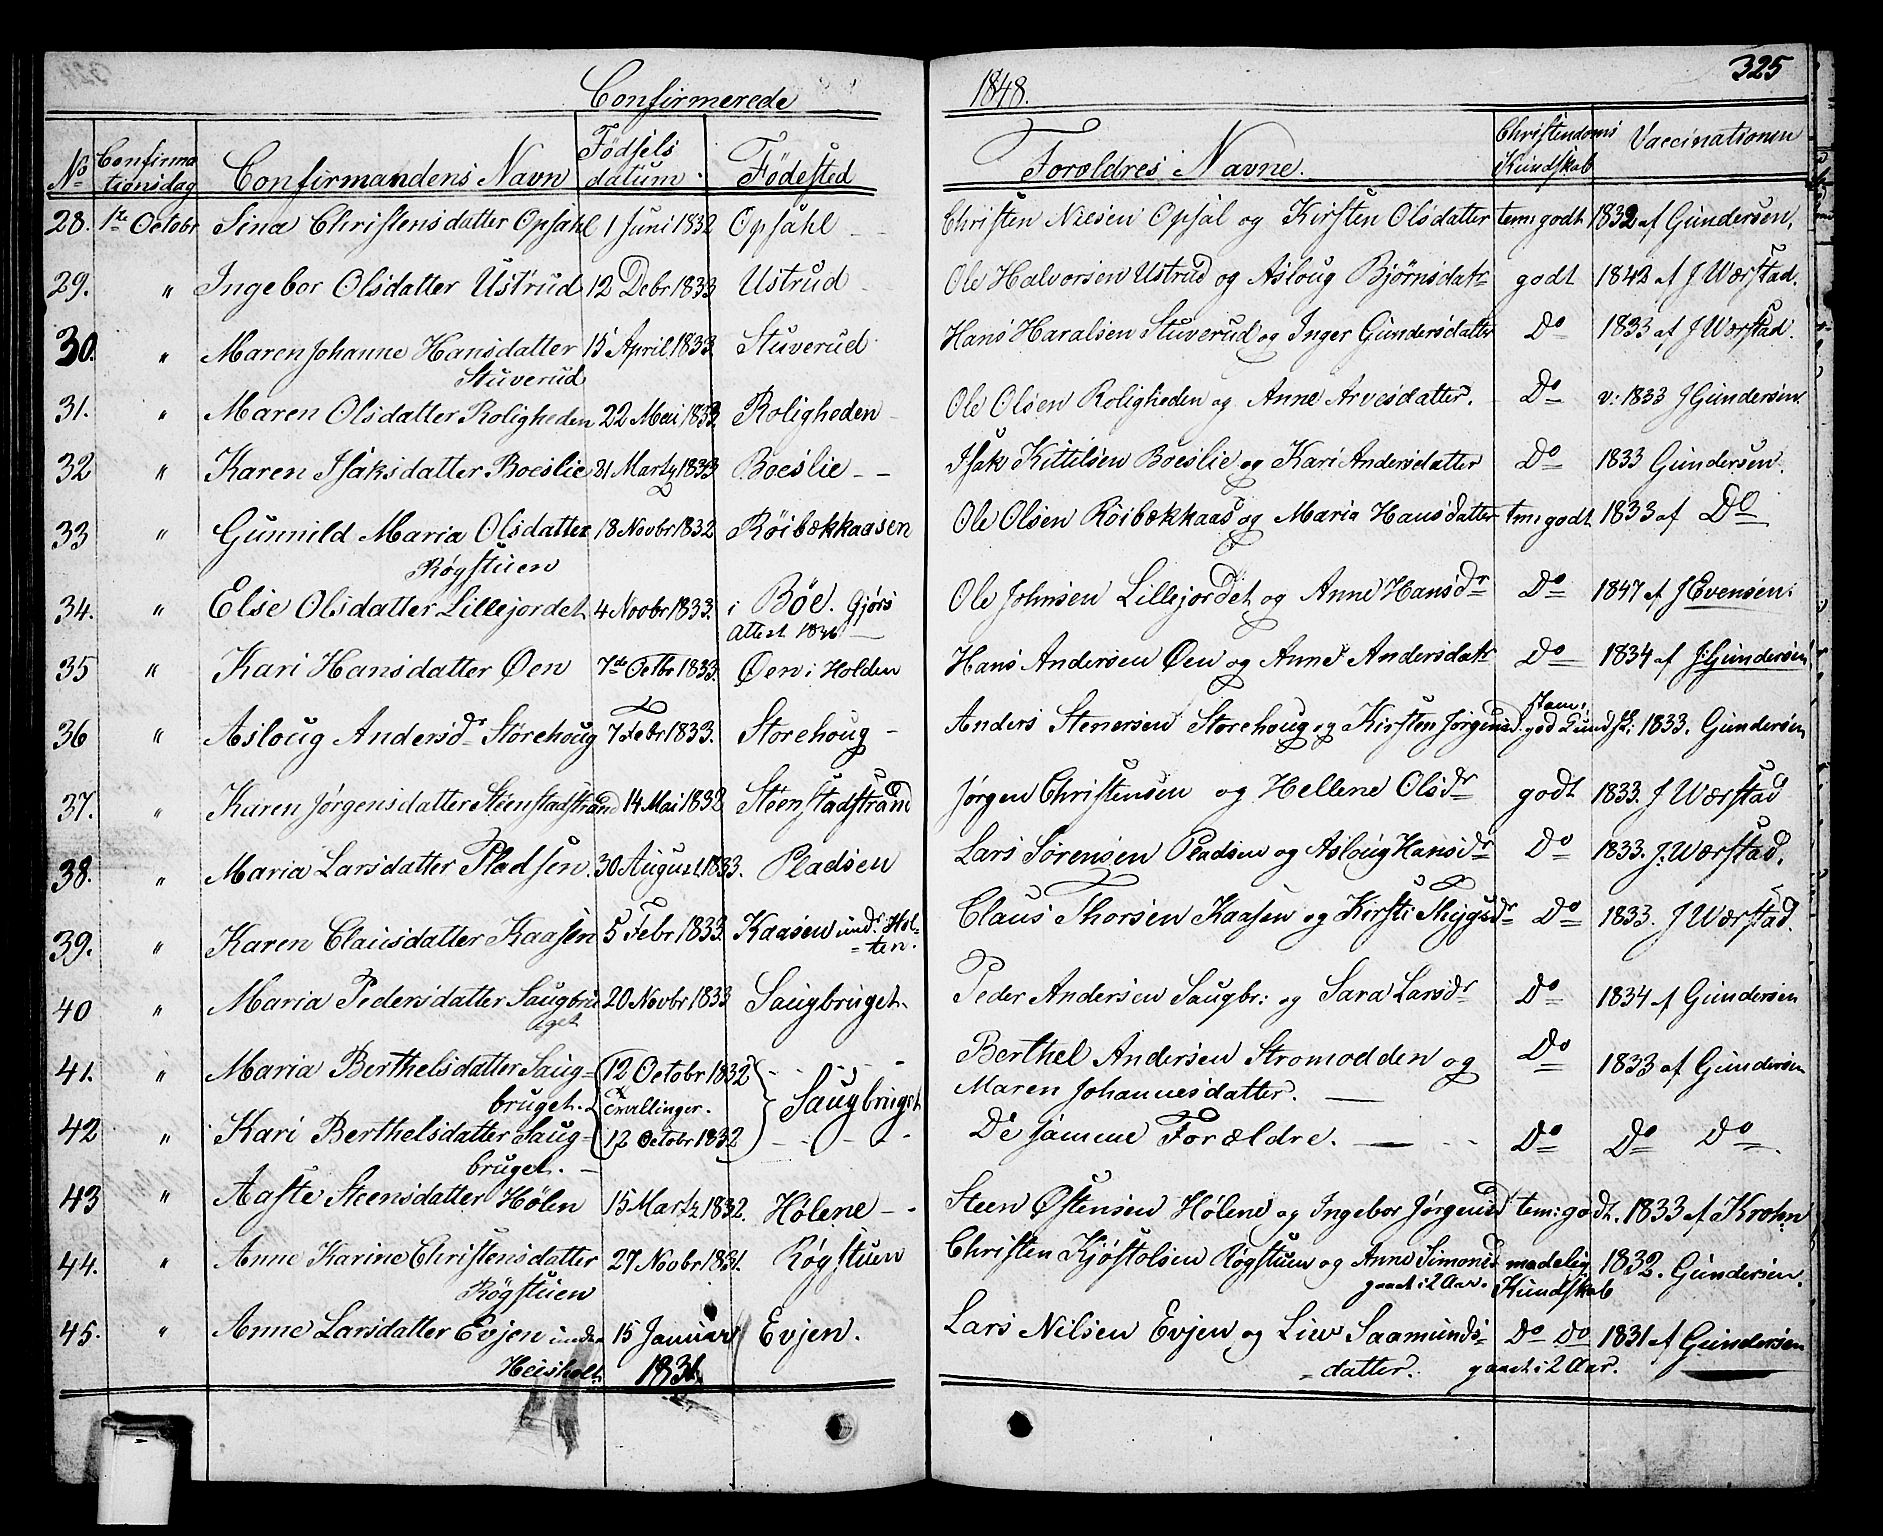 Confirmerede 1848. 325
No Confirmationsdag Confirmandens Navn Födsels datum. Födested Forældres Navne. Christendoms Kundskab Vaccinationen
28. 1te Octobr Sina Christensdatter Opsahl 1 Juni 1832 Opsahl - - Christen Nielsen Opsal og Kirsten Olsdatter tem: godt 1832 af Gundersen.
29. " Ingebor Olsdatter Ustrud 12 Debr 1833 Ustrud - Ole Halvorsen Ustrud og Asloug Bjørnsdatr godt 1842 af J Wærstad.
30. " Maren Johanne Hansdatter 15 April 1833. Stuverud Hans Haralsen Stuverud og Inger Gundersdatter Do 1833 af J Wærstad.
Stuverud
31. " Maren Olsdatter Roligheden 22 Mai 1833 Roligheden - Ole Olsen Roligheden og Anne Arvesdatter. Do v: 1833 J Gundersen.
32 " Karen Isaksdatter Boeslie 21 Martz 1833 Boeslie - - Isak Kittilsen Boeslie og Kari Andersdatter Do 1833 Gundersen.
33 " Gunnild Maria Olsdatter 18 Novbr 1832 Röibækkaasen Ole Olsen Röibækkaas og Maria Hansdatter tm: godt 1833 af Do
Røgstuen
34. " Else Olsdatter Lillejordet 4 Novbr 1833. i Böe. Gjørs Ole Johnsen Lillejordet og Anne Hansdr Do 1847 af J Evensen.
Attest 1846
35 " Kari Hansdatter Øen 7de Octbr 1833. Øen i Holden Hans Andersen Øen og Anne Andersdatr Do 1834 af J: Gundersen
36 " Asloug Andersdr Störehoug 7 Febr 1833. Storehoug - Anders Stenersen Storehoug og Kirsten Jørgensd. tem: god Kundsk: 1833. Gundersen
37. " Karen Jørgensdatter Steenstadstrand 14 Mai 1832 Steenstadstrand Jørgen Christensen og Hellene Olsdr godt 1833. J Wærstad
38. " Maria Larsdatter Pladsen. 30 August 1833. Pladsen Lars Sørensen Pladsen og Asloug Hansdr Do 1833. J. Wærstad.
39. " Karen Clausdatter Kaasen 5 Febr 1833. Kaasen undr Hol- Claus Thorsen Kaasen og Kirsti Thygsdr Do 1833. J Wærstad.
ten.
40 " Maria Pedersdatter Saugbru 20 Novbr 1833 Saugbruget. Peder Andersen Saugbr: og Sara Larsdr Do 1834 af Gundersen
get
41. " Maria Berthelsdatter Saug- 12 Octobr 1832 - - - - Berthel Andersen Stromodden og Do 1833 af Gundersen
bruget. Tvillinger. Saugbruget Maren Johannesdatter.
42 " Kari Berthelsdatter Saug- 12 Octobr 1832 - - - - De samme Forældre. Do Do Do
bruget. -
43 " Aaste Steensdatter Hølen 15 Martz 1832. Hølene - - Steen Østensen Hølene og Ingebor Jørgensd tem: godt. 1833 af Krohn
44. " Anne Karine Christensdatter 27 Novbr 1831. Røgstuen Christen Kjøstolsen Røgstuen og Anne Simonsd madelig 1832. Gundersen.
Røgstuen gaaet i 2 Aar. Kundskab
45. " Anne Larsdatter Evjen under 15 Januar Evjen. Lars Nilsen Evjen og Liw Saamunds- Do Do 1831 af Gundersen
Heisholt 1831 -datter. gaaet i 2 Aar.